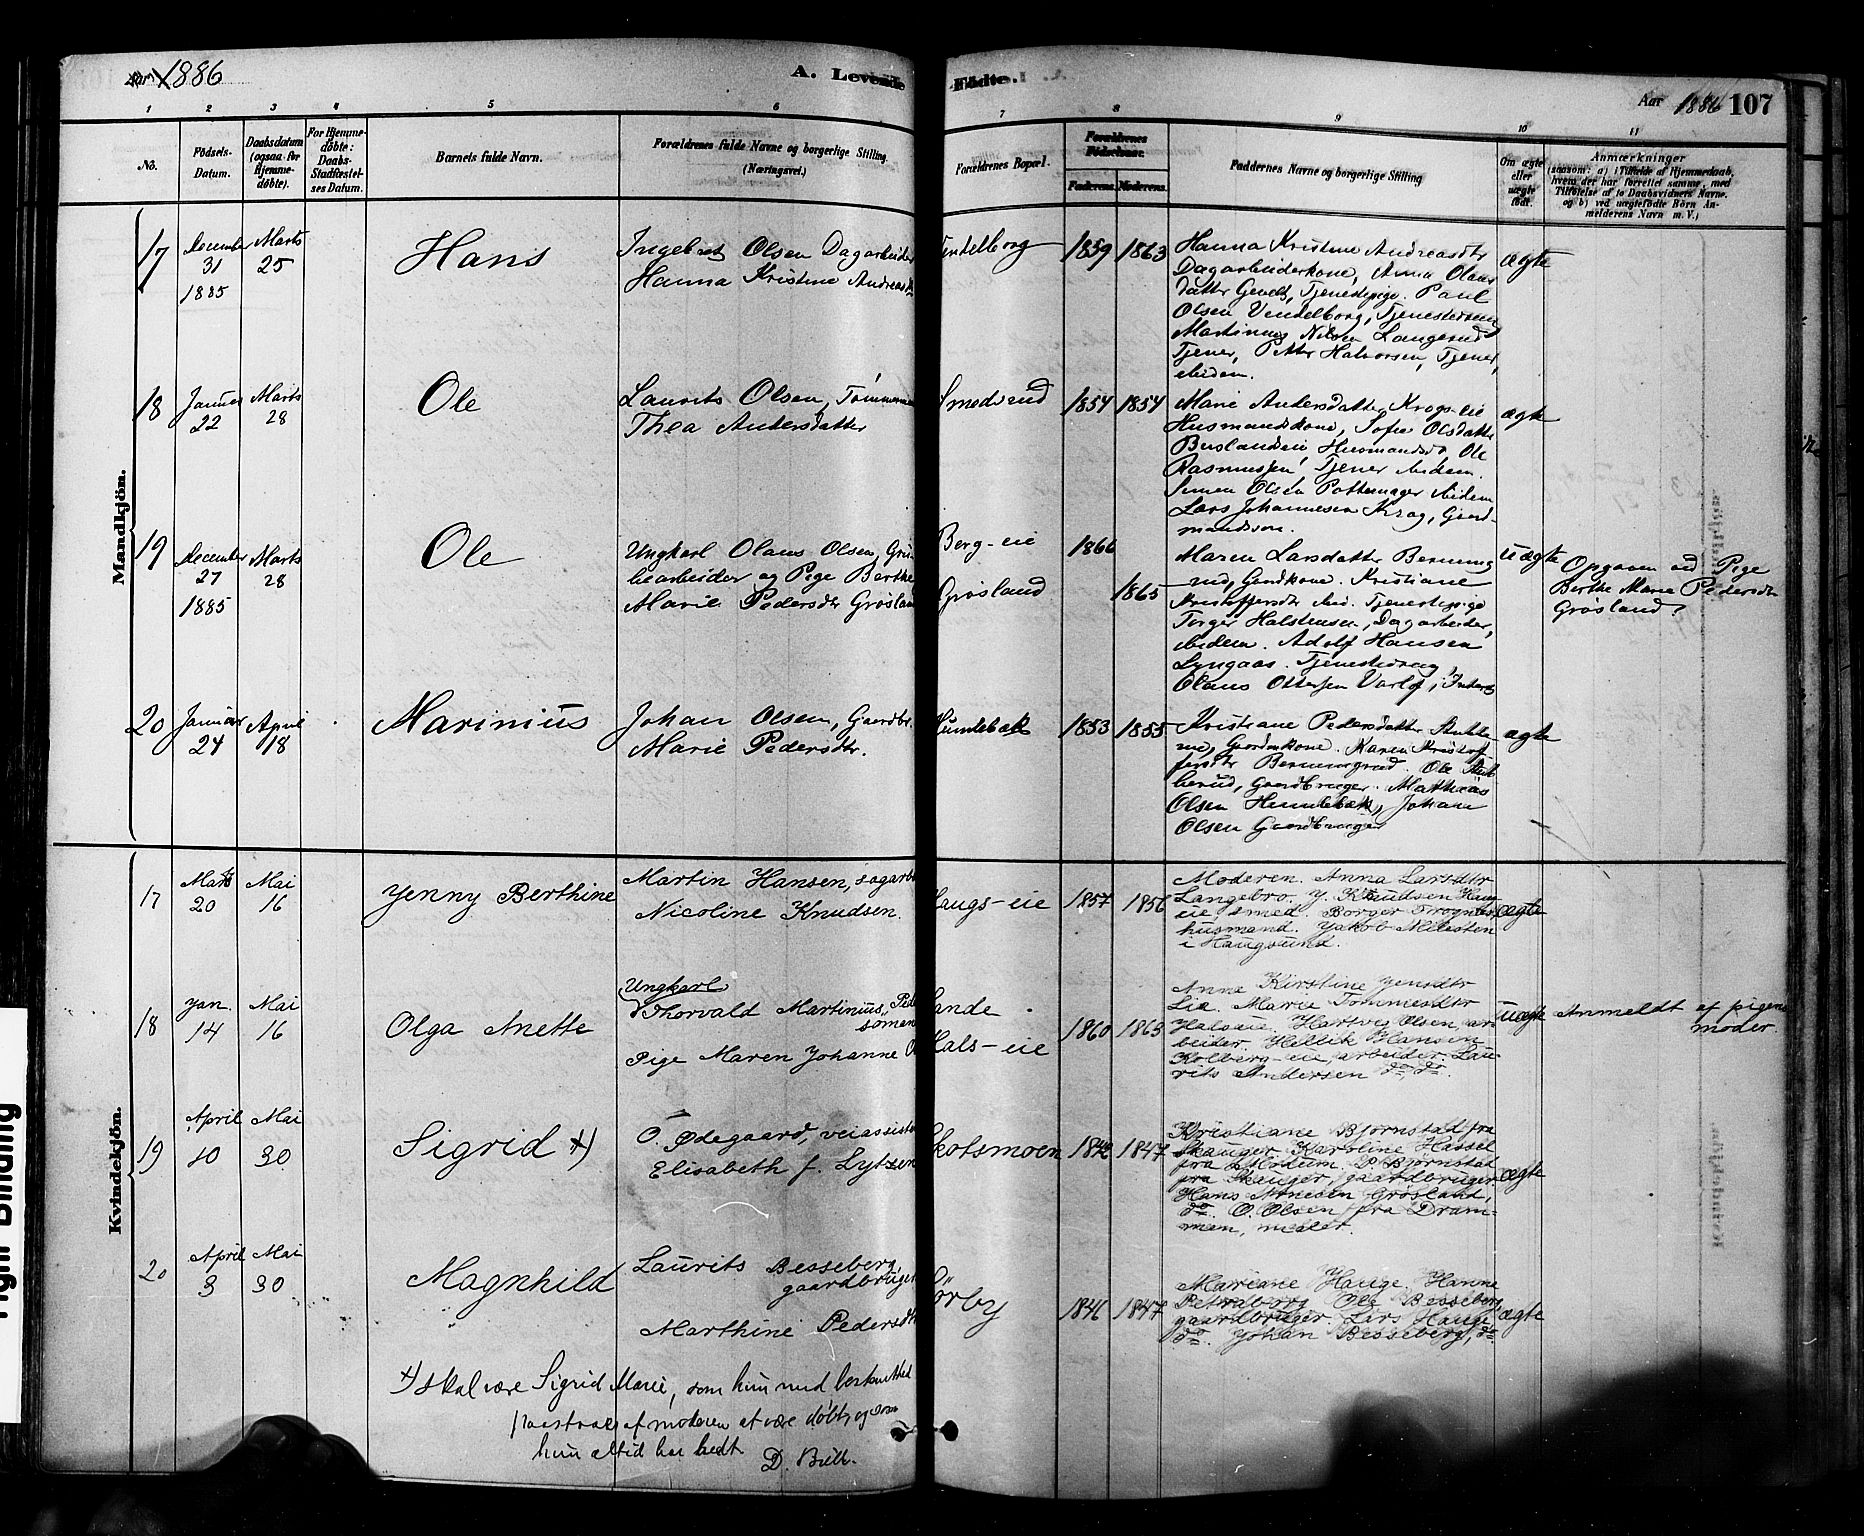 Aar 1886
A. Levende Fødte.
Aar 1886 107
1 2 3 4 5 6 7 8 9 10 11
No.
Fødsels-Datum.
Daabsdatum (ogsaa for Hjemmedøbte).
For Hjemmedøbte: Daabs-Stadfæstelses Datum.
Barnets fulde Navn.
Forældrenes fulde Navne og borgerlige Stilling (Næringsvei.)
Forældrenes Bopæl.
Forældrenes Fødselsaar.
Faderens. Moderens.
Faddernes Navne og borgerlige Stilling
Om ægte eller uægte født.
Anmærkninger
(saasom: a) i Tilfælde af Hjemmedaab, hvem der har forrettet samme, med Tilføielse af to Daabsvidners Navne. og b) ved uægtefødte Börn Anmelderens Navn m. V.)
Mandkjön.
17 December 31 1885 Marts 25
Hans
Ingebret Olsen Dagarbeider
Hanna Kristine Andreasd
Vendelborg
1859 1863
Hanna Kristine Andreasdtr
Dagarbeiderkone, Anna Olaus
datter Gevelt, Tjenestepige. Paul
Olsen Vendelborg, Tjenestedreng
Martinus Nilsen Langerud
Tjener, Petter Halvorsen, Tjener,
ibidem.
ægte
18 Januar 22 Marts 28
Ole
Laurits Olsen, Tømmerm
Thea Andersdatter
Smedsrud
1854 1854
Marie Andersdatter Krogs-eie
Husmandskone, Sofie Olsdatter
Buslandseie Husmandsd. Ole
Rasmussen, Tjener ibidem
Simen Olsen Pottemager ibidem
Lars Johannesen Krog, Gaard-
mandssøn.
ægte
19 December 27 1885 Marts 28
Ole
Ungkarl Olaus Olsen, Gru
bearbeider og Pige Berthe
Marie Pedersdtr Grøsland
Berg-eie
Grøsland
1866
1865
Maren Larsdatter Berming
rud, Gaardkone. Kristiane
Kristoffersdtr ibid. Tjenestepige
Torger Halstensen, Dagarbeider,
ibidem. Adolf Hansen
Lyngaas. Tjenestedreng,
Olaus Ottersen Varlo,
uægte
Opgaven ad Pige
Berthe Marie Pedersdtr
Grøsland.
20 Januar 24 April 18
Marinius
Johan Olsen, Gaardbr.
Marie Pedersdtr.
Hundebæk
1853 1855
Kristiane Pedersdatter Stubbe
rud, Gaardmkone. Karen Kristof
fersdtr Bermingrud. Ole Stub
berud, Gaardbruger. Mathias
Olsen Hundebæk, Johan
Olsen Gaardbruger
ægte
Kvindekjön.
17 Marts 20 Mai 16
Jenny Berthine
Martin Hansen, sagarb
Nicoline Knudsen.
Haugs-eie
1857 1856
Moderen. Anna Larsdtr
Langebro. J. Knudsen Haug
eie, smed. Borger Trogn
husmand. Jakob Milesten
i Haugsund.
ægte
18 Jan. 14 Mai 16
Olga Anette
Ungkarl
Thorvald Martinius Ped
Pige Maren Johanne O
Sande
Hals-eie
1860 1863
Anne Kirstine Jensdtr
Lie. Marie Tommesdtr
Halseie. Hartvig Olsen, ar-
beider. Hellik Hansen
Kolberg-eie, arbeider. Lau-
rits Andersen do, do.
uægte
Anmeldt af pigens
moder.
19 April 10 Mai 30
Sigrid x)
O. Ødegaard, veiassiste
Elisabeth f. Lytzen
Skotsmoen
1842 1847
Kristiane Bjørnstad fra
Skauger. Karoline Hassel
fra Modum. P. Bjørnstad
fra Skauger, gaardbruger.
Hans Grøsland,
do. O. Olsen fra Dram-
men, maler.
ægte
20 April 3 Mai 30
Magnhild
Laurits Besseberg,
gaardbruger
Marthine Pedersdtr
Sörby
1846 1847
Mariane Hauge. Hanne
Petraborg. Ole Besseberg
gaardbruger. Lars Hauge,
do. Johan Besseberg, do
ægte
x) skal være Sigrid Marie, som hun med bestemthed
paastaaes af moderen at være døbt, og som
hun altid har hedt
D. Bull.